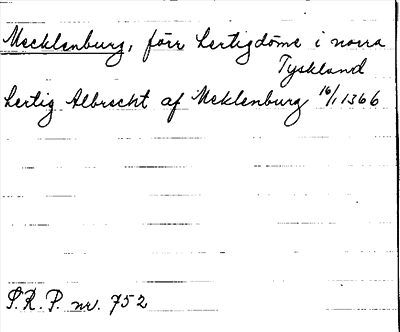 Mecklenburg, förr hertigdöme i norra
Tyskland
hertig Albrecht af Meklenburg 16/1 1366
S.R.P. nr. 752